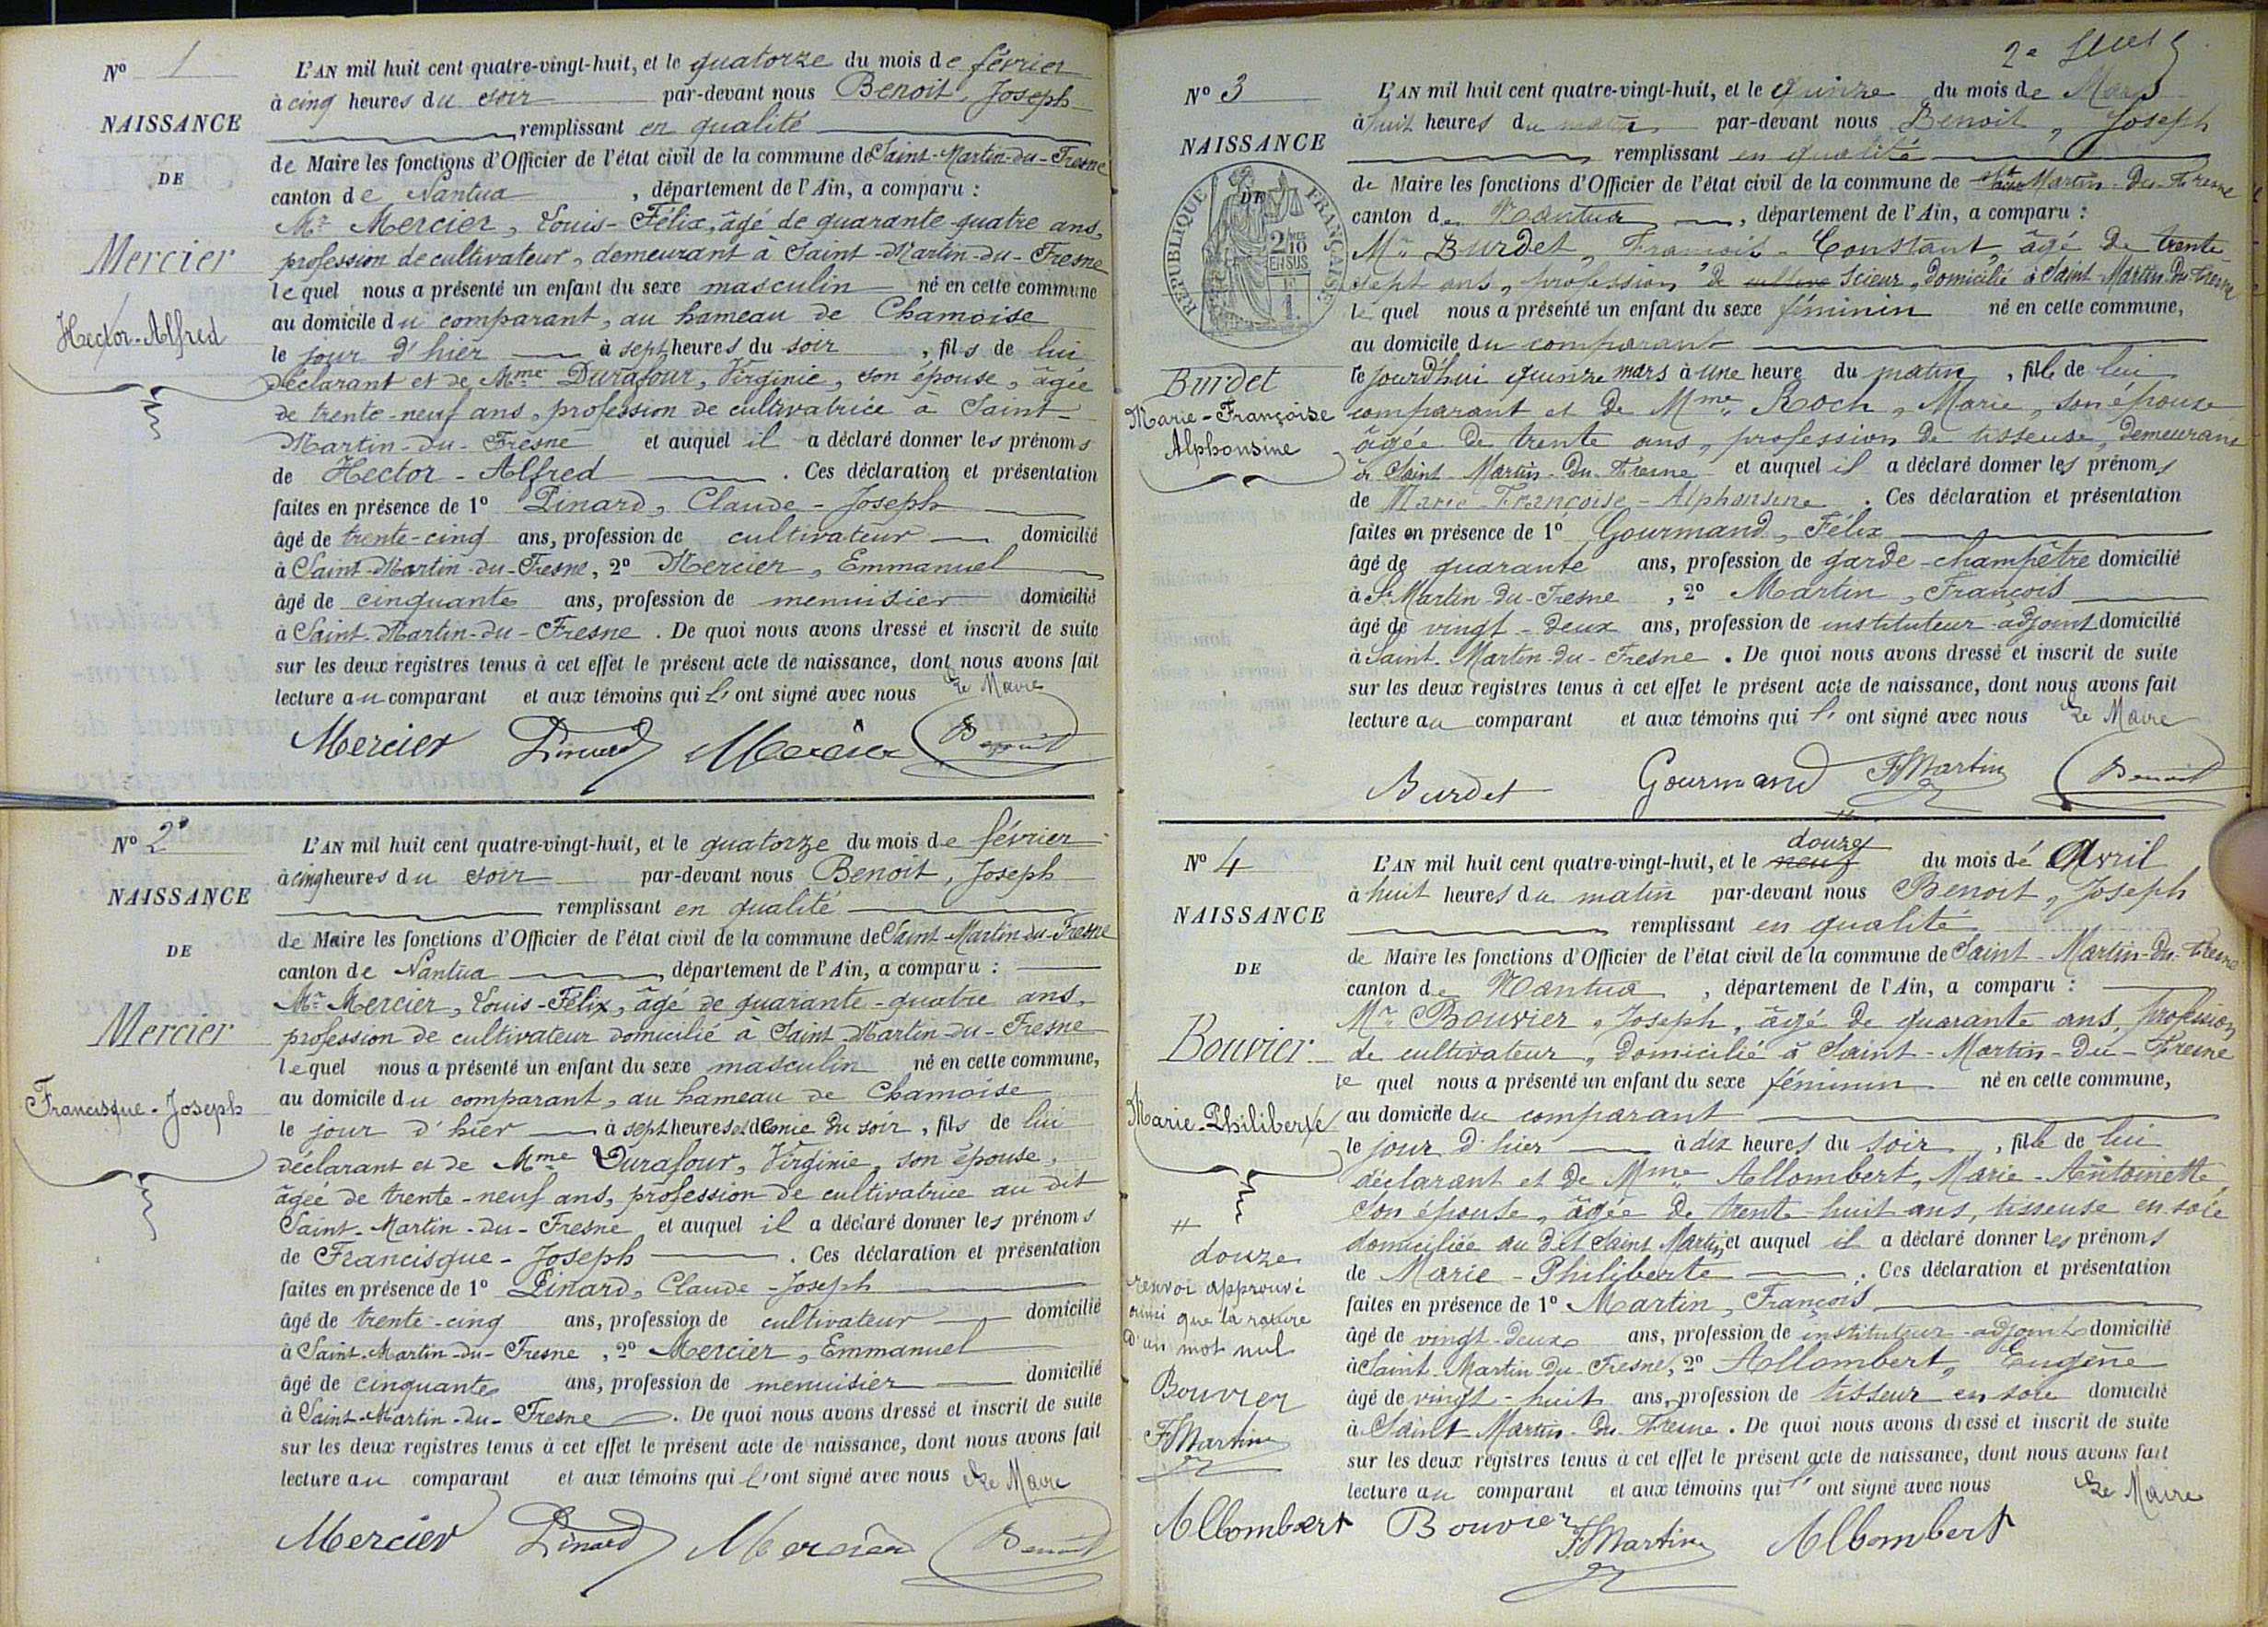 N° 1
NAISSANCE
DE
Mercier
Hector-Alfred
L'AN mil huit cent quatre-vingt-huit, et le quatorze du mois de février
à cinq heures du soir par-devant nous Benoit, Joseph
remplissant en qualité
de Maire les fonctions d'Officier de l'état civil de la commune de Saint-Martin-du-Fresne
canton de Nantua, département de l'Ain, a comparu :
Mr Mercier, Louis-Félix, âgé de quarante-quatre ans,
profession de cultivateur, demeurant à Saint-Martin-du-Fresne
lequel nous a présenté un enfant du sexe masculin né en cette commune
au domicile du comparant, au hameau de Chamoise
le jour d'hier à sept heures du soir, fils de lui
déclarant et de Mme Durafour, Virginie, son épouse, âgée
de trente-neuf ans, profession de cultivatrice à Saint-
Martin-du-Fresne et auquel il a déclaré donner les prénoms
de Hector-Alfred. Ces déclaration et présentation
faites en présence de 1° Pinard, Claude-Joseph
âgé de trente-cinq ans, profession de cultivateur domicilié
à Saint-Martin-du-Fresne, 2° Mercier, Emmanuel
âgé de cinquante ans, profession de menuisier domicilié
à Saint-Martin-du-Fresne. De quoi nous avons dressé et inscrit de suite
sur les deux registres tenus à cet effet le présent acte de naissance, dont nous avons fait
lecture au comparant et aux témoins qui l'ont signé avec nous Le Maire
Mercier Pinard Mercier Benoit
N° 2
NAISSANCE
DE
Mercier
Francisque-Joseph
L'AN mil huit cent quatre-vingt-huit, et le quatorze du mois de février
à cinq heures du soir par-devant nous Benoit, Joseph
remplissant en qualité
de Maire les fonctions d'Officier de l'état civil de la commune de Saint-Martin-du-Fresne
canton de Nantua, département de l'Ain, a comparu :
Mr Mercier, Louis-Félix, âgé de quarante-quatre ans,
profession de cultivateur domicilié à Saint-Martin-du-Fresne
lequel nous a présenté un enfant du sexe masculin né en cette commune,
au domicile du comparant, au hameau de Chamoise
le jour d'hier à sept heures et demie du soir, fils de lui
déclarant et de Mme Durafour, Virginie, son épouse,
âgée de trente-neuf ans, profession de cultivatrice au dit
Saint-Martin-du-Fresne et auquel il a déclaré donner les prénoms
de Francisque-Joseph. Ces déclaration et présentation
faites en présence de 1° Pinard, Claude-Joseph
âgé de trente-cinq ans, profession de cultivateur domicilié
à Saint-Martin-du-Fresne, 2° Mercier, Emmanuel
âgé de cinquante ans, profession de menuisier domicilié
à Saint-Martin-du-Fresne. De quoi nous avons dressé et inscrit de suite
sur les deux registres tenus à cet effet le présent acte de naissance, dont nous avons fait
lecture au comparant et aux témoins qui l'ont signé avec nous Le Maire
Mercier Pinard Mercier Benoit
2e
N° 3
NAISSANCE
DE
RÉPUBLIQUE FRANÇAISE
2/10 EN SUS
Burdet
Marie-Françoise
Alphonsine
L'AN mil huit cent quatre-vingt-huit, et le quinze du mois de Mars
à huit heures du matin par-devant nous Benoit, Joseph
remplissant en qualité
de Maire les fonctions d'Officier de l'état civil de la commune de St Martin-du-Fresne
canton de Nantua, département de l'Ain, a comparu :
Mr Burdet, François-Constant, âgé de trente-
sept ans, profession de scieur, domicilié à Saint-Martin-du-Fresne
lequel nous a présenté un enfant du sexe féminin né en cette commune,
au domicile du comparant
le jourd'hui quinze mars à une heure du matin, fille de lui
comparant et de Mme Roch, Marie, son épouse
âgée de trente ans, profession de tisseuse, demeurant
à Saint-Martin-du-Fresne et auquel il a déclaré donner les prénoms
de Marie-Françoise-Alphonsine. Ces déclaration et présentation
faites en présence de 1° Gourmand, Félix
âgé de quarante ans, profession de garde-champêtre domicilié
à St Martin-du-Fresne, 2° Martin, François
âgé de vingt-deux ans, profession de instituteur-adjoint domicilié
à Saint-Martin-du-Fresne. De quoi nous avons dressé et inscrit de suite
sur les deux registres tenus à cet effet le présent acte de naissance, dont nous avons fait
lecture au comparant et aux témoins qui l'ont signé avec nous Le Maire
Burdet Gourmand F Martin Benoit
N° 4
NAISSANCE
DE
Bouvier
Marie-Philiberte
douze
renvoi approuvé
ainsi que la rature
d'un mot nul
Bouvier
F Martin
Allombert
douze
L'AN mil huit cent quatre-vingt-huit, et le neuf du mois de Avril
à huit heures du matin par-devant nous Benoit, Joseph
remplissant en qualité
de Maire les fonctions d'Officier de l'état civil de la commune de Saint-Martin-du-Fresne
canton de Nantua, département de l'Ain, a comparu :
Mr Bouvier, Joseph, âgé de quarante ans, profession
de cultivateur, domicilié à Saint-Martin-du-Fresne
lequel nous a présenté un enfant du sexe féminin né en cette commune,
au domicile du comparant
le jour d'hier à dix heures du soir, fille de lui
déclarant et de Mme Allombert, Marie-Antoinette,
son épouse, âgée de trente-huit ans, tisseuse en soie
domiciliée au dit Saint Martin et auquel il a déclaré donner les prénoms
de Marie-Philiberte. Ces déclaration et présentation
faites en présence de 1° Martin, François
âgé de vingt-deux ans, profession de instituteur-adjoint domicilié
à Saint-Martin-du-Fresne, 2° Allombert, Eugène
âgé de vingt-huit ans, profession de tisseur en soie domicilié
à Saint-Martin-du-Fresne. De quoi nous avons dressé et inscrit de suite
sur les deux registres tenus à cet effet le présent acte de naissance, dont nous avons fait
lecture au comparant et aux témoins qui l'ont signé avec nous Le Maire
Bouvier F Martin Allombert